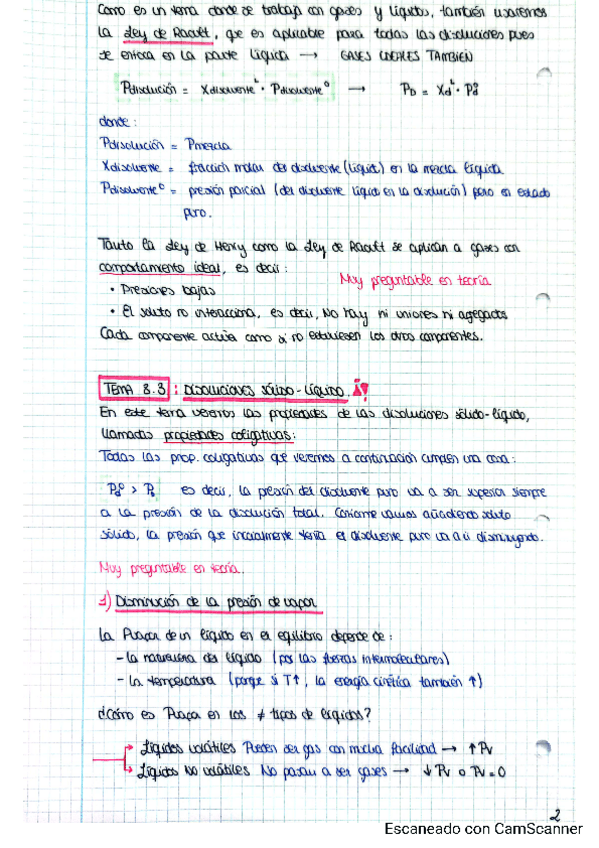 Como es un tema donde se trabaja con gases y líquidos, también usaremos
la Ley de Raoult, que es aplicable para todas las disoluciones pues
se enfoca en la parte líquida → GASES IDEALES TAMBIÉN
Pdisolución = Xdisolvente^L · Pdisolvente^0 → PD = Xd^L · Pd^0
donde:
Pdisolución = Pmezcla
Xdisolvente = fracción molar del disolvente (líquido) en la mezcla líquida.
Pdisolvente^0 = presión parcial (del disolvente líquido en la disolución) pero en estado
puro.
Tanto la Ley de Henry como la Ley de Raoult se aplican a gases con
comportamiento ideal, es decir:
Muy preguntable en teoría
• Presiones bajas
• El soluto no interacciona, es decir, NO hay ni uniones ni agregados
Cada componente actúa como si no estuviesen los otros componentes.
TEMA 8.3: DISOLUCIONES SÓLIDO-LÍQUIDO.
En este tema veremos las propiedades de las disoluciones sólido-líquido,
llamadas propiedades coligativas:
Todas las prop. coligativas que veremos a continuación cumplen una cosa:
es decir, la presión del disolvente puro va a ser superior siempre
a la presión de la disolución total. Conforme vamos añadiendo soluto
sólido, la presión que inicialmente tenía el disolvente puro va a ir disminuyendo.
Muy preguntable en teoría.
1) Disminución de la presión de vapor
La Pvapor de un líquido en el equilibrio depende de:
- la naturaleza del líquido (por las fuerzas intermoleculares)
- la temperatura (porque si T↑, la energía cinética también ↑)
¿Cómo es Pvapor en los ≠ tipos de líquidos?
Líquidos volátiles Pueden ser gas con mucha facilidad → ↑Pv
Líquidos NO volátiles No pasan a ser gases → ↓Pv o Pv=0
2
Escaneado con CamScanner